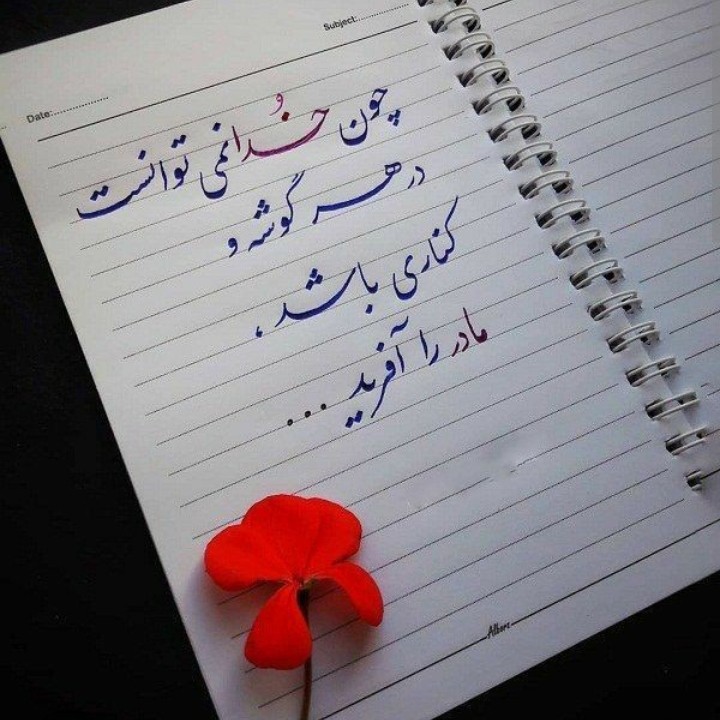 Subject:..................
Date:..................
چون خُدا نمی توانست
در هر گوشه و
کناری باشد،
مادر را آفرید ...